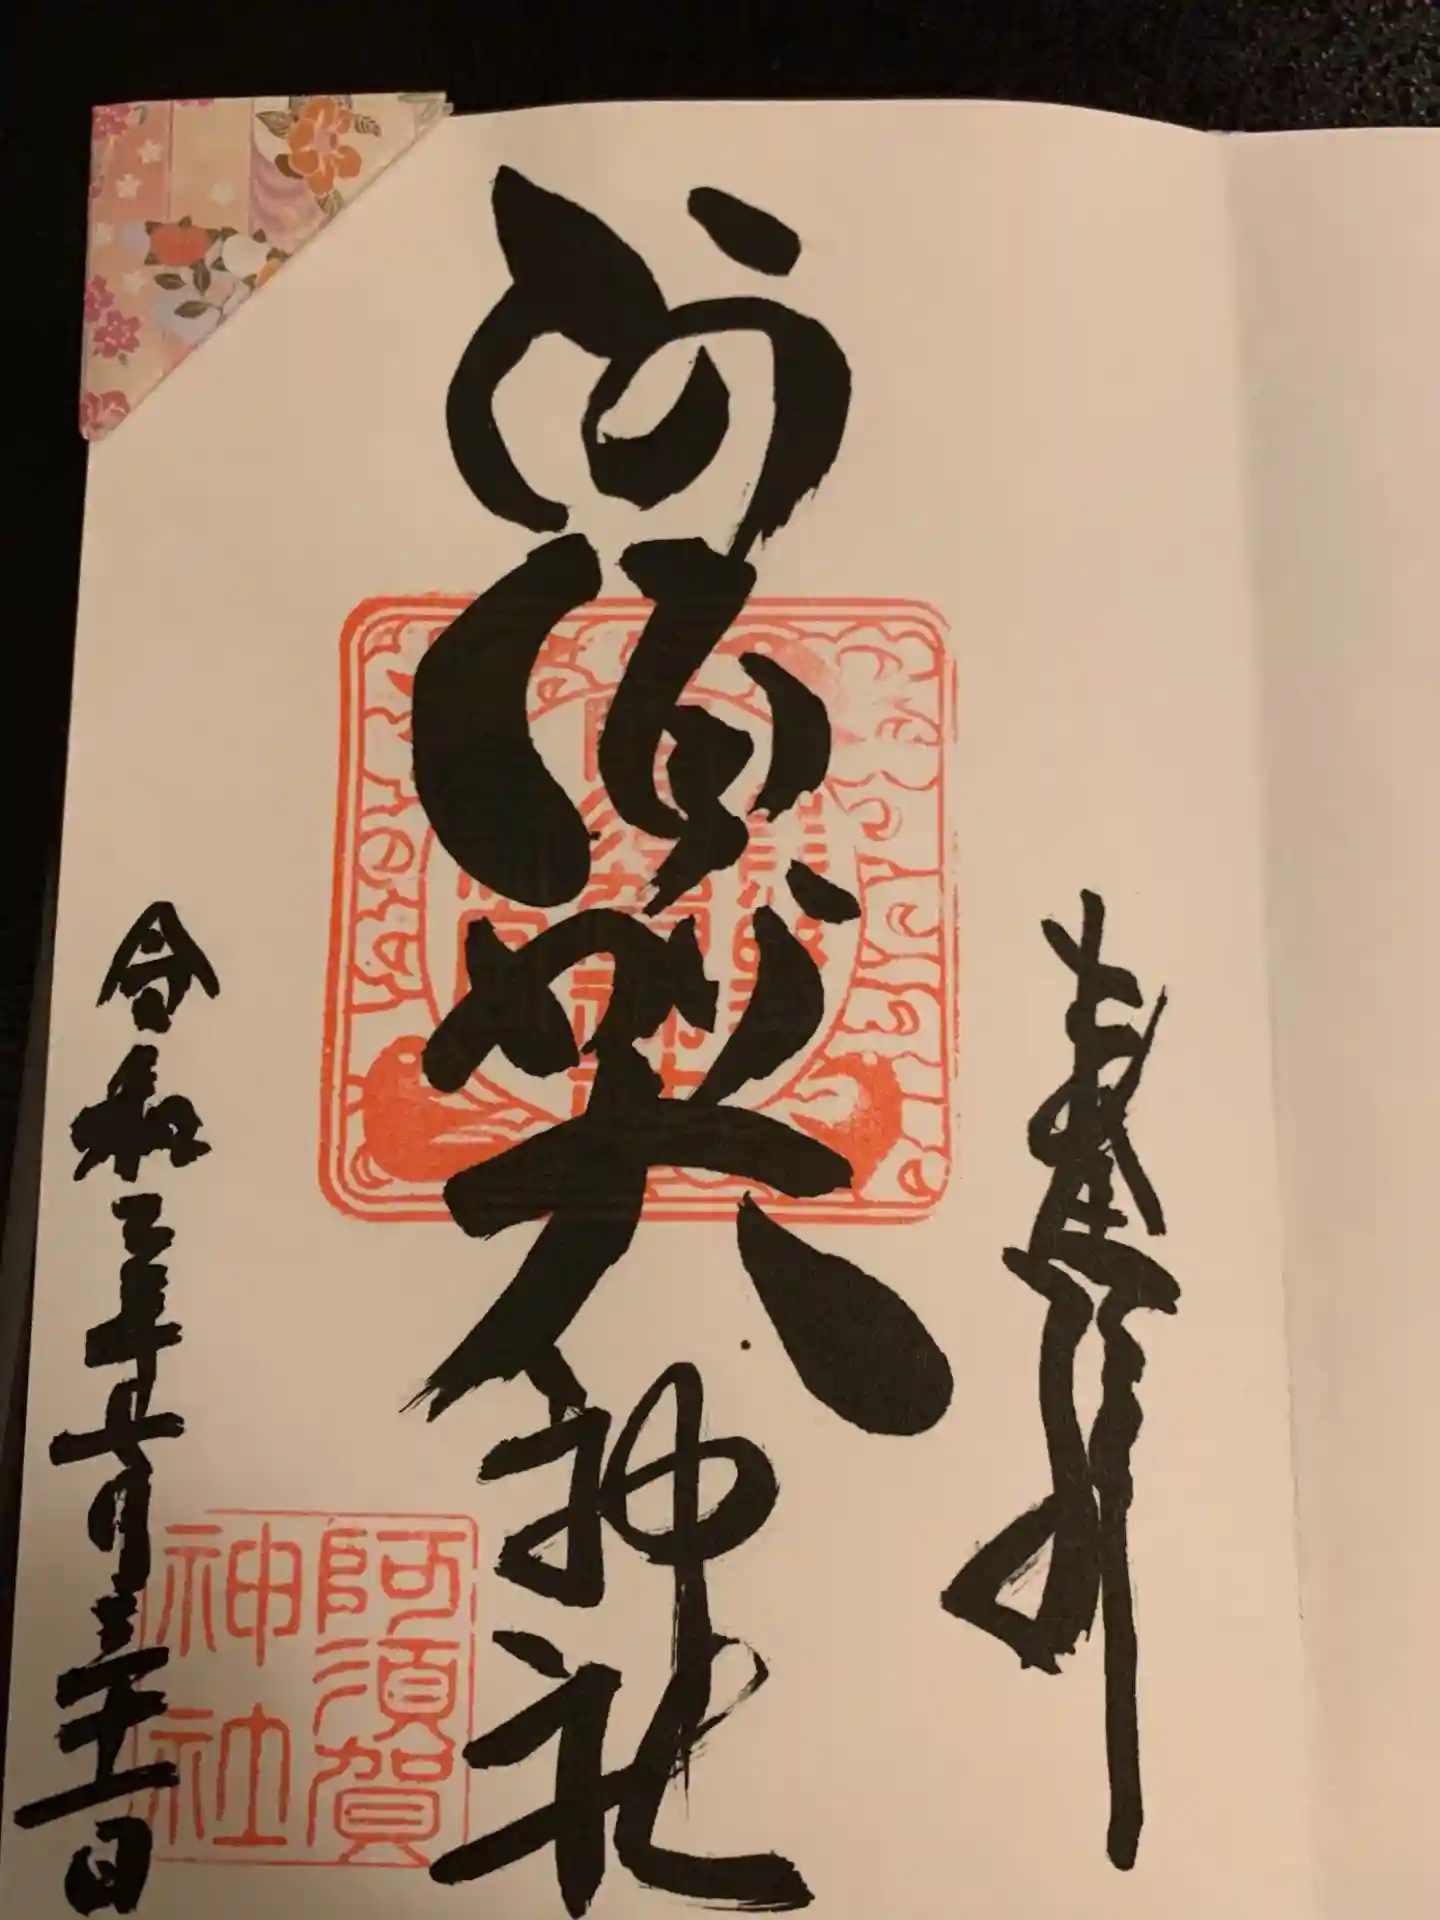 奉拝
阿須賀神社
令和三年七月三十一日
阿須賀
神社